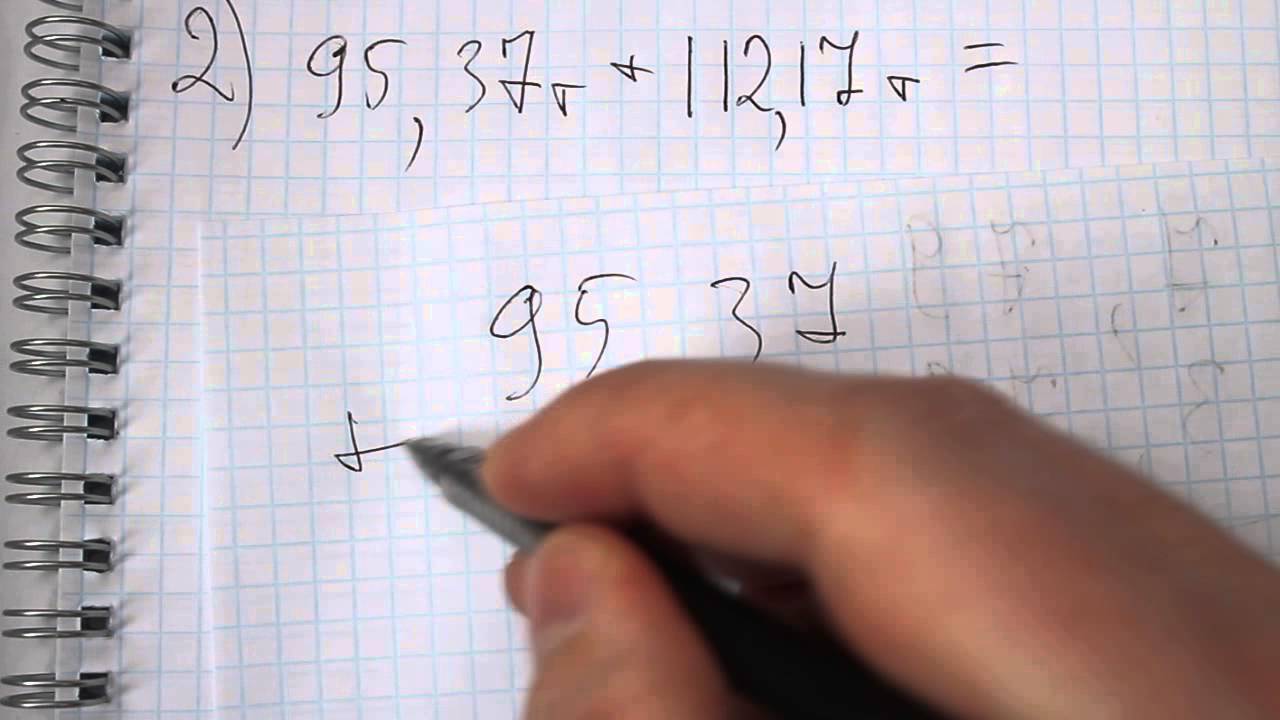 2) 95,37т + 112,17т =
95 37
+